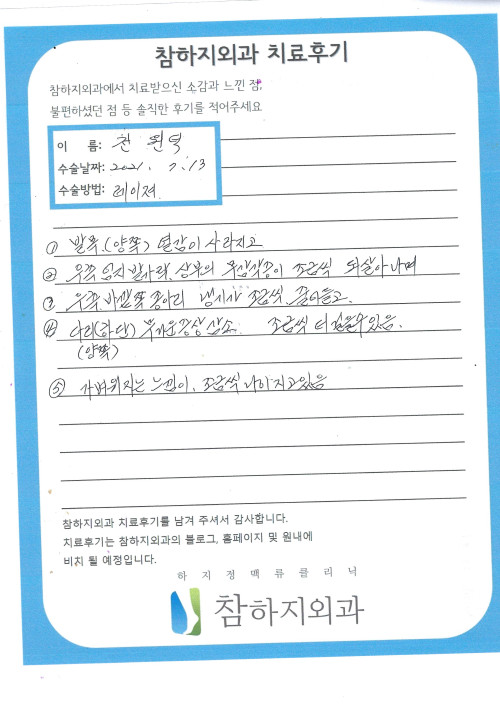 참하지외과 치료후기
참하지외과에서 치료받으신 소감과 느낀 점,
불편하셨던 점 등 솔직한 후기를 적어주세요
이 름: 천 원덕
수술날짜: 2021. 7. 13
수술방법: 레이져
① 발목 (양쪽) 열감이 사라지고
② 우측 엄지 발가락 상부의 무감각증이 조금씩 되살아나며
③ 우측 바깥쪽 종아리 냉기가 조금씩 줄어들고
④ 다리(하단) 무거운 증상 감소. 조금씩 더 걸을수있음.
(양쪽)
⑤ 가벼워지는 느낌이. 조금씩 나아지고있음
참하지외과 치료후기를 남겨 주셔서 감사합니다.
치료후기는 참하지외과의 블로그, 홈페이지 및 원내에
비치 될 예정입니다.
하지정맥류클리닉
참하지외과